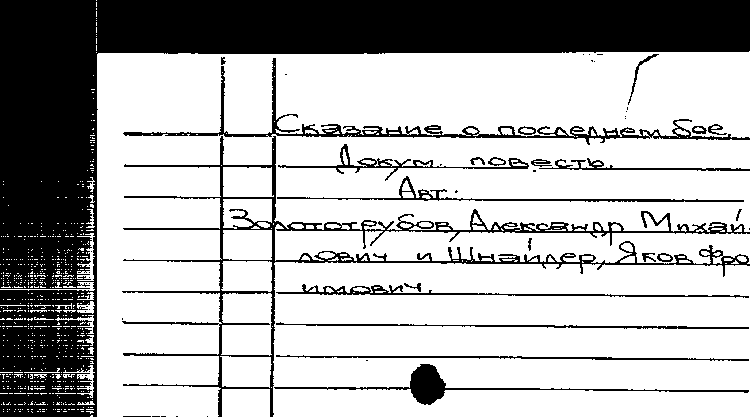 Сказание о последнем бое.
Докум. повесть.
Авт.:
Золототрубов, Александр Михай-
лович и Шнайдер, Яков Фро
имович.